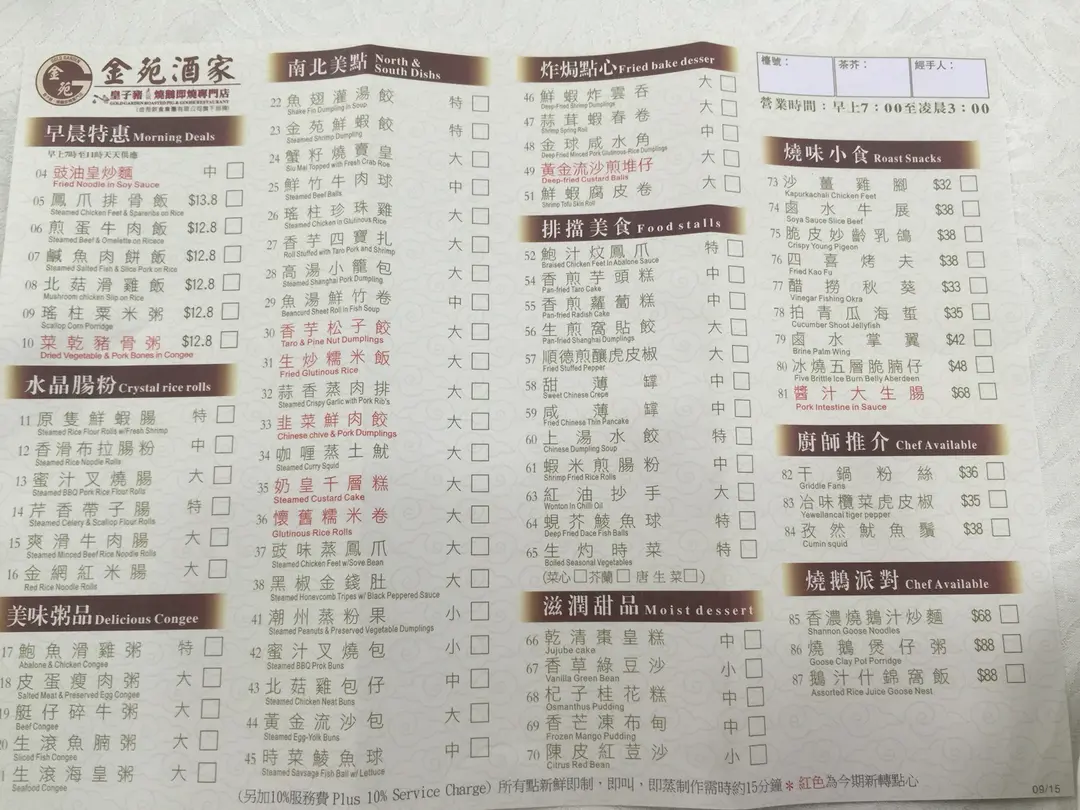 金苑酒家
皇子豬 燒鵝即燒專門店
GOLD GARDEN ROASTED PIG & GOOSE RESTAURANT
早晨特惠 Morning Deals
早上7時至11時天天供應
04 豉油皇炒麵 中
Fried Noodle in Soy Sauce
05 鳳爪排骨飯 $13.8
Steamed Chicken Feet & Spareribs on Rice
06 煎蛋牛肉飯 $12.8
Steamed Beef & Omelette on Ricece
07 鹹魚肉餅飯 $12.8
Steamed Salted Fish & Slice Pork on Rice
08 北菇滑雞飯 $12.8
Mushroom chicken Slip on Rice
09 瑤柱粟米粥 $12.8
Scallop Corn Porridge
10 菜乾豬骨粥 $12.8
Dried Vegetable & Pork Bones in Congee
水晶腸粉 Crystal rice rolls
11 原隻鮮蝦腸 特
Steamed Rice Flour Rolls w/Fresh Shrimp
12 香滑布拉腸粉 中
Steamed Rice Noodle Rolls
13 蜜汁叉燒腸 大
Steamed BBQ Pork Rice Flour Rolls
14 芹香帶子腸 特
Steamed Celery & Scallop Flour Rolls
15 爽滑牛肉腸 大
Steamed Minced Beef Rice Noodle Rolls
16 金網紅米腸 大
Red Rice Noodle Rolls
美味粥品 Delicious Congee
17 鮑魚滑雞粥 特
Abalone & Chicken Congee
18 皮蛋瘦肉粥 大
Salted Meat & Preserved Egg Congee
19 艇仔碎牛粥 大
Beef Congee
20 生滾魚腩粥 大
Sliced Fish Congee
1 生滾海皇粥 大
Seafood Congee
南北美點 North & South Dishs
22 魚翅灌湯餃 特
Shake Fin Dumpling in Soup
23 金苑鮮蝦餃 特
Steamed Shrimp Dumpling
24 蟹籽燒賣皇 大
Siu Mai Topped with Fresh Crab Roe
25 鮮竹牛肉球 中
Steamed Beef Balls
26 瑤柱珍珠雞 大
Steamed Chicken in Glutinous Rice
27 香芋四寶扎 大
Roll Stuffed with Taro Pork and Shrimp
28 高湯小籠包 大
Steamed Shanghai Pork Dumpling
29 魚湯鮮竹卷 中
Beancurd Sheet Roll in Fish Soup
30 香芋松子餃 大
Taro & Pine Nut Dumplings
31 生炒糯米飯 大
Fried Glutinous Rice
32 蒜香蒸肉排 大
Steamed Crispy Garlic with Pork Rib's
33 韭菜鮮肉餃 大
Chinese chive & Pork Dumplings
34 咖喱蒸土魷 大
Steamed Curry Squid
35 奶皇千層糕 大
Steamed Custard Cake
36 懷舊糯米卷 大
Glutinous Rice Rolls
37 豉味蒸鳳爪 大
Steamed Chicken Feet w/Sove Bean
38 黑椒金錢肚 大
Steamed Honeycomb Tripes w/ Black Peppered Sauce
41 潮州蒸粉果 小
Steamed Peanuts & Preserved Vegetable Dumplings
42 蜜汁叉燒包 小
Steamed BBQ Prok Buns
43 北菇雞包仔 中
Steamed Chicken Neat Buns
44 黃金流沙包 大
Steamed Egg-Yolk Buns
45 時菜鯪魚球 中
Steamed Savsage Fish Ball w/ Lettuce
炸焗點心 Fried bake desser
46 鮮蝦炸雲吞 大
Deep-fried Shrimp Dumplings
47 蒜茸蝦春卷 大
Shrimp Spring Roll
48 金球咸水角 中
Deep Fried Minced Pork Glutinous-Rice Dumplings
49 黃金流沙煎堆仔 大
Deep-fried Custard Balls
51 鮮蝦腐皮卷 大
Shrimp Tofu Skin Roll
排擋美食 Food stalls
52 鮑汁炆鳳爪 特
Braised Chicken Feet In Abalone Sauce
54 香煎芋頭糕 中
Pan-fried Taro Cake
55 香煎蘿蔔糕 中
Pan-fried Radish Cake
56 生煎窩貼餃 大
Fried Shanghai Dumplings
57 順德煎釀虎皮椒 大
Fried Stuffed Pepper
58 甜薄罉 中
Sweet Chinese Crepe
59 咸薄罉 中
Fried Chinese Thin Pancake
60 上湯水餃 特
Chinese Dumpling Soup
61 蝦米煎腸粉 中
Shrimp Fried Rice Rolls
63 紅油抄手 大
Wonton In Chilli Oil
64 蜆芥鯪魚球 特
Deep Fried Dace Fish Balls
65 生灼時菜 特
Boiled Seasonal Vegetables
(菜心□芥蘭□ 唐生菜□)
滋潤甜品 Moist dessert
66 乾清棗皇糕 中
Jujube cake
67 香草綠豆沙 小
Vanilla Green Bean
68 杞子桂花糕 中
Osmanthus Pudding
69 香芒凍布甸 中
Frozen Mango Pudding
70 陳皮紅荳沙 小
Citrus Red Bean
檯號： 茶芥： 經手人：
營業時間：早上7：00至凌晨3：00
燒味小食 Roast Snacks
73 沙薑雞腳 $32
Kaporkachali Chicken Feet
74 鹵水牛展 $38
Soya Sauce Slice Beef
75 脆皮妙齡乳鴿 $38
Crispy Young Pigeon
76 四喜烤夫 $38
Fried Kao Fu
77 醋撈秋葵 $33
Vinegar Fishing Okra
78 拍青瓜海蜇 $35
Cucumber Shoot Jellyfish
79 鹵水掌翼 $42
Brine Palm Wing
80 冰燒五層脆腩仔 $48
Five Brittle Ice Burn Belly Aberdeen
81 醬汁大生腸 $68
Pork Intestine in Sauce
廚師推介 Chef Available
82 干鍋粉絲 $36
Griddle Fans
83 冶味欖菜虎皮椒 $35
Yewellancai tiger pepper
84 孜然魷魚鬚 $38
Cumin squid
燒鵝派對 Chef Available
85 香濃燒鵝汁炒麵 $68
Shannon Goose Noodles
86 燒鵝煲仔粥 $88
Goose Clay Pot Porridge
87 鵝汁什錦窩飯 $88
Assorted Rice Juice Goose Nest
(另加10%服務費 Plus 10% Service Charge) 所有點新鮮即制，即叫，即蒸制作需時約15分鐘 * 紅色為今期新轉點心
09/15